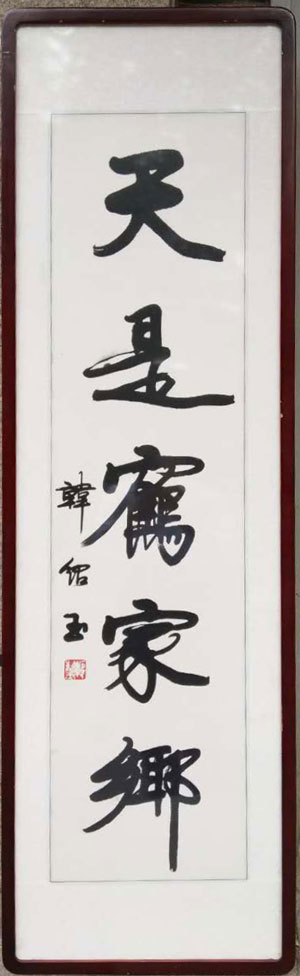 天是鶴家鄉
韓紹玉